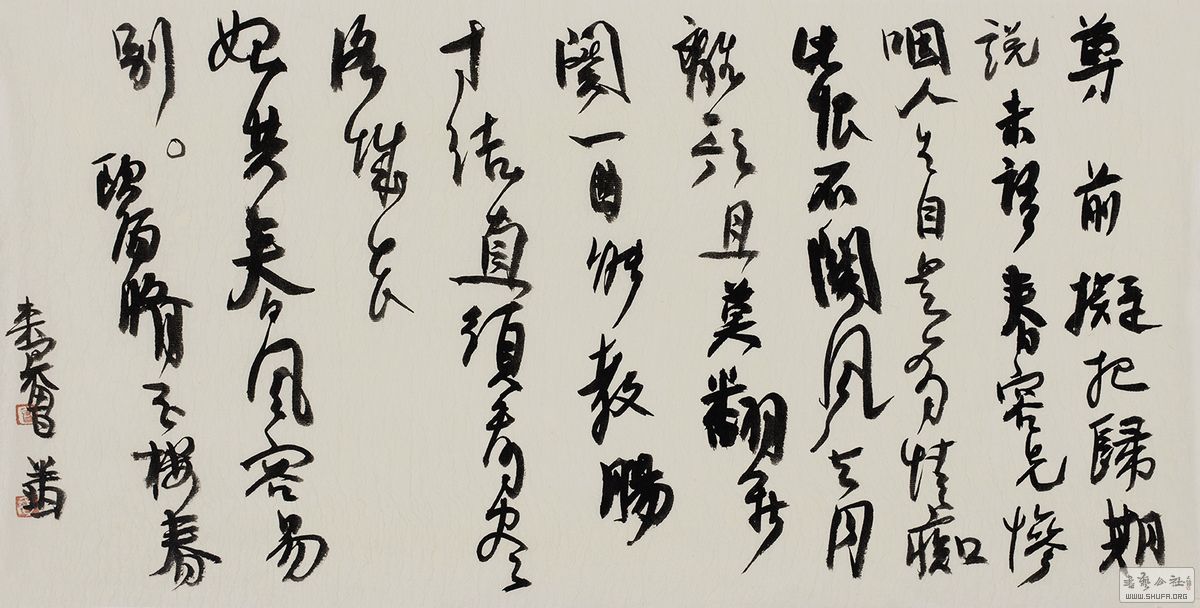 尊前擬把歸期
説未語春容先慘
咽人生自是有情癡
此恨不關風与月
離歌且莫翻新
闋一曲能教腸
寸結直須看盡
洛城花
始共春風容易
別。
歐陽脩玉樓春
書藝公社
WWW.SHUFA.ORG